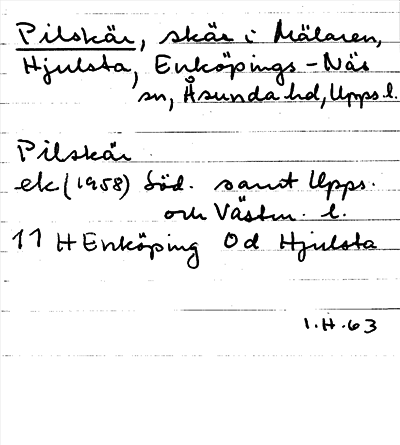 Pilskär, skär i Mälaren,
Hjulsta, Enköpings-Näs
sn, Åsunda hd, Upps. l.
Pilskär
ek (1958) Söd. samt Upps.
och Västm. l.
11 H Enköping Od Hjulsta
I.H.63